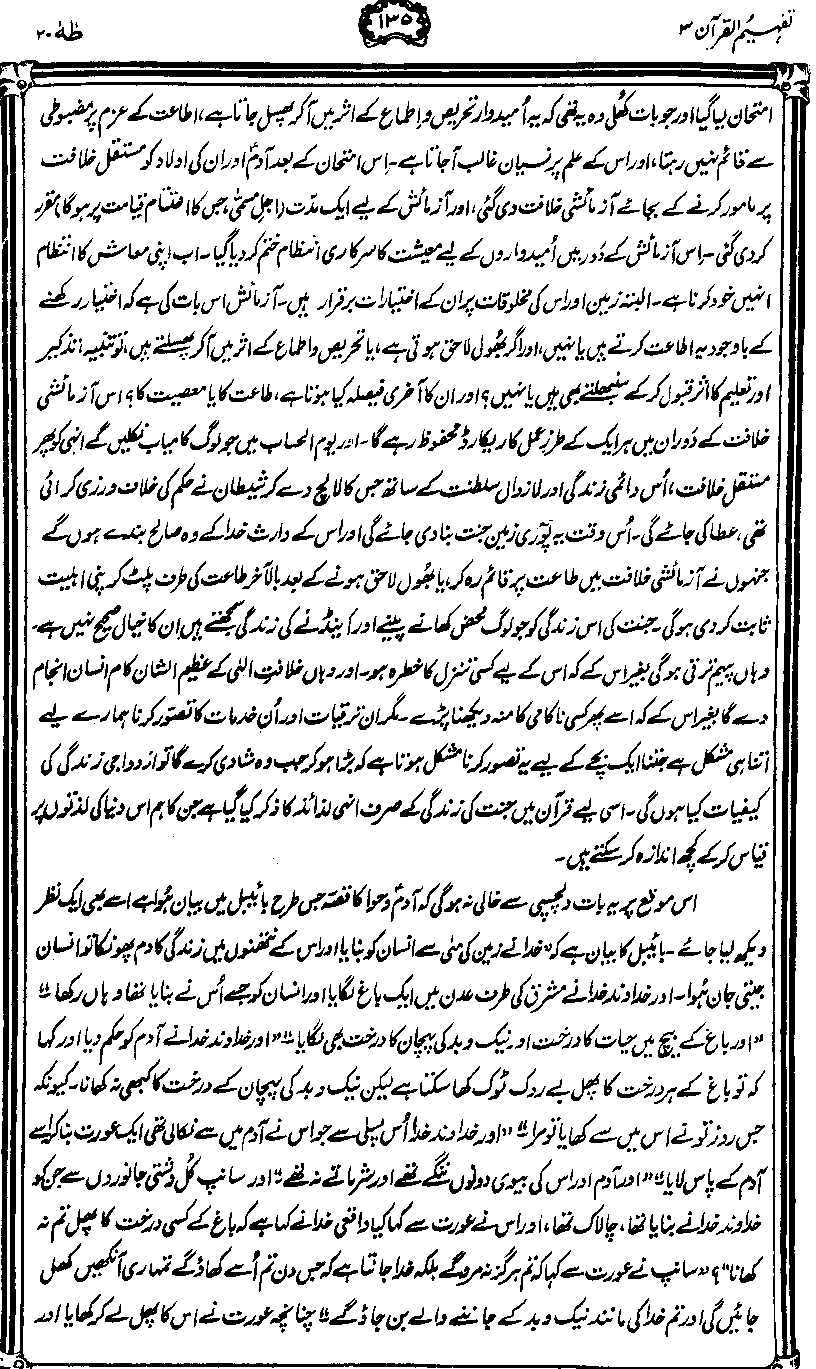 تفہیم القرآن ۳
۱۳۵
طٰہٰ ۲۰
امتحان لیا گیا اور جو بات کھُل وہ یہ تھی کہ یہ اُمیدوار تحریص و اطماع کے اثر میں آکر پھسل جاتا ہے، اطاعت کے عزم پر مضبوطی
سے قائم نہیں رہتا، اور اس کے علم پر نسیان غالب آجاتا ہے۔ اِس امتحان کے بعد آدمؑ اور ان کی اولاد کو مستقل خلافت
پر مامور کرنے کے بجائے آزمائشی خلافت دی گئی، اور آزمائش کے لیے ایک مدّت (اجلِ مسمّٰی، جس کا اختتام قیامت پر ہوگا) مقرر
کر دی گئی۔ اس آزمائش کے دَور میں اُمیدواروں کے لیے معیشت کا سرکاری انتظام ختم کر دیا گیا۔ اب اپنی معاش کا انتظام
انہیں خود کرنا ہے۔ البتہ زمین اور اس کی مخلوقات پر ان کے اختیارات برقرار ہیں۔ آزمائش اس بات کی ہے کہ اختیار رکھنے
کے باوجود یہ اطاعت کرتے ہیں یا نہیں، اور اگر بھُول لاحق ہوتی ہے، یا تحریص و اطماع کے اثر میں آکر پھسلتے ہیں، تو تنبیہ، تذکیر
اور تعلیم کا اثر قبول کر کے سنبھلتے بھی ہیں یا نہیں؟ اور ان کا آخری فیصلہ کیا ہوتا ہے، طاعت کا یا معصیت کا؟ اس آزمائشی
خلافت کے دَوران میں ہر ایک کے طرزِ عمل کا ریکارڈ محفوظ رہے گا۔ اور یوم الحساب میں جو لوگ کامیاب نکلیں گے انہی کو پھر
مستقل خلافت، اُس دائمی زندگی اور لازوال سلطنت کے ساتھ جس کا لالچ دے کر شیطان نے حکم کی خلاف ورزی کرائی
تھی، عطا کی جائے گی۔ اُس وقت یہ پُوری زمین جنت بنا دی جائے گی اور اس کے وارث خدا کے وہ صالح بندے ہوں گے
جنہوں نے آزمائشی خلافت میں طاعت پر قائم رہ کر، یا بھُول لاحق ہونے کے بعد بالآخر طاعت کی طرف پلٹ کر اپنی اہلیت
ثابت کر دی ہوگی۔ جنت کی اس زندگی کو جو لوگ محض کھانے پینے اور اینڈنے کی زندگی سمجھتے ہیں ان کا خیال صحیح نہیں ہے۔
وہاں پیہم ترقی ہوگی بغیر اس کے کہ اس کے لیے کسی تنزل کا خطرہ ہو۔ اور وہاں خلافتِ الٰہی کے عظیم الشان کام انسان انجام
دے گا بغیر اس کے کہ اسے پھر کسی ناکامی کا منہ دیکھنا پڑے۔ مگر ان ترقیات اور اُن خدمات کا تصوّر کرنا ہمارے لیے
اتنا ہی مشکل ہے جتنا ایک بچے کے لیے یہ تصور کرنا مشکل ہوتا ہے کہ بڑا ہو کر جب وہ شادی کرے گا تو ازدواجی زندگی کی
کیفیات کیا ہوں گی۔ اسی لیے قرآن میں جنت کی زندگی کے صرف انہی لذائذ کا ذکر کیا گیا ہے جن کا ہم اس دنیا کی لذتوں پر
قیاس کر کے کچھ اندازہ کر سکتے ہیں۔
اس موقع پر یہ بات دلچسپی سے خالی نہ ہوگی کہ آدمؑ و حوا کا قصّہ جس طرح بائیبل میں بیان ہُوا ہے اسے بھی ایک نظر
دیکھ لیا جائے۔ بائیبل کا بیان ہے کہ "خدا نے زمین کی مٹی سے انسان کو بنایا اور اس کے نتھنوں میں زندگی کا دم پھونکا تو انسان
جیتی جان ہُوا۔ اور خداوند خدا نے مشرق کی طرف عدن میں ایک باغ لگایا اور انسان کو جسے اُس نے بنایا تھا وہاں رکھا"
"اور باغ کے بیچ میں حیات کا درخت اور نیک و بد کی پہچان کا درخت بھی لگایا" "اور خداوند خدا نے آدم کو حکم دیا اور کہا
کہ تو باغ کے ہر درخت کا پھل بے روک ٹوک کھا سکتا ہے لیکن نیک و بد کی پہچان کے درخت کا کبھی نہ کھانا۔ کیونکہ
جس روز تو نے اس میں سے کھایا تو مرا" "اور خداوند خدا اُس پسلی سے جو اس نے آدم میں سے نکالی تھی ایک عورت بنا کر اسے
آدم کے پاس لایا" "اور آدم اور اس کی بیوی دونوں ننگے تھے اور شرماتے نہ تھے" "اور سانپ کُل دشتی جانوروں سے جن کو
خداوند خدا نے بنایا تھا، چالاک تھا، اور اس نے عورت سے کہا کیا واقعی خدا نے کہا ہے کہ باغ کے کسی درخت کا پھل تم نہ
کھانا"؟ "سانپ نے عورت سے کہا کہ تم ہرگز نہ مرو گے بلکہ خدا جانتا ہے کہ جس دن تم اُسے کھاؤ گے تمہاری آنکھیں کھل
جائیں گی اور تم خدا کی مانند نیک و بد کے جاننے والے بن جاؤ گے" چنانچہ عورت نے اس کا پھل لے کر کھایا اور